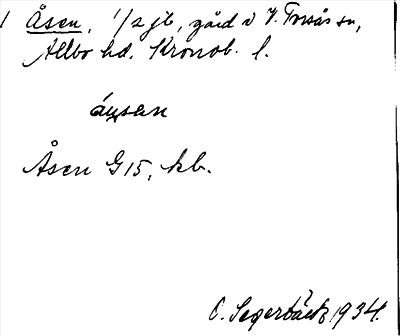 1 Åsen, 1/2 jb, gård i V. Torsås sn,
Allbo hd. Kronob. l.
Åsen G15, kb.
C. Segerbäck 1934.